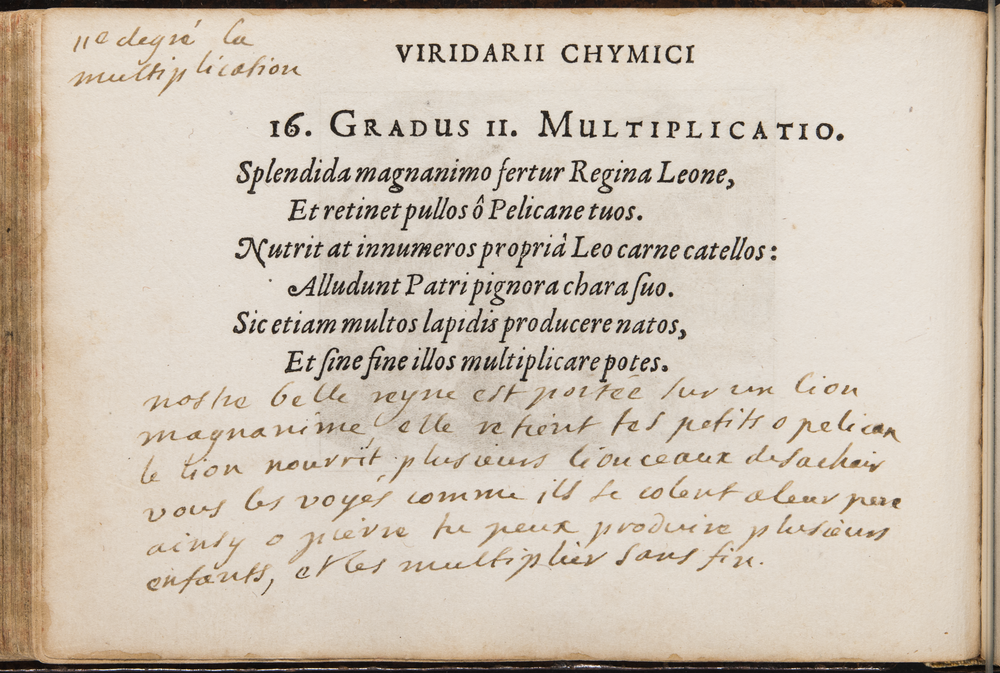 11e degré la
multiplication
VIRIDARII CHYMICI
16. GRADUS II. MULTIPLICATIO.
Splendida magnanimo fertur Regina Leone,
Et retinet pullos ô Pelicane tuos.
Nutrit at innumeros propriâ Leo carne catellos:
Alludunt Patri pignora chara ſuo.
Sic etiam multos lapidis producere natos,
Et ſine fine illos multiplicare potes.
nostre belle reyne est portée sur un lion
magnanime elle retient tes petits o pelican
le lion nourrit plusieurs lionceaux de sa chair
vous les voyés comme ils se colent a leur pere
ainsy o pierre tu peux produire plusieurs
enfants, et les multiplier sans fin.